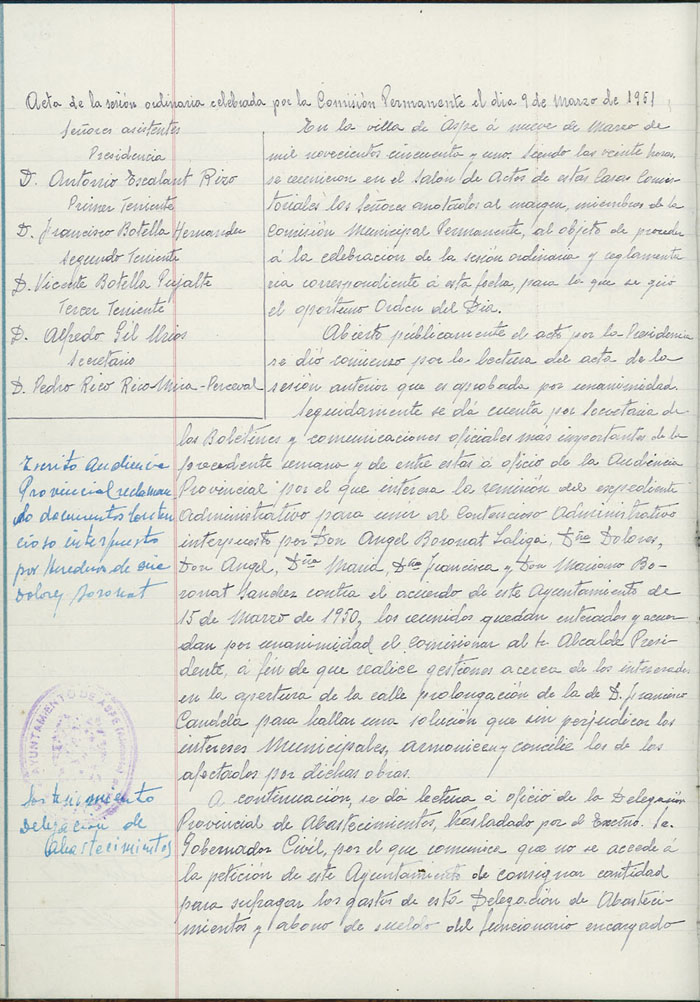 Acta de la sesión ordinaria celebrada por la Comisión Permanente el dia 9 de Marzo de 1951.
Señores asistentes
Presidencia
D. Antonio Escalant Rizo
Primer Teniente
D. Francisco Botella Hernandez
Segundo Teniente
D. Vicente Botella Pujalte
Tercer Teniente
D. Alfredo Gil Urios
Secretario
D. Pedro Rico Rico-Mira-Perceval
En la villa de Aspe á nueve de Marzo de
mil novecientos cincuenta y uno. Siendo las veinte horas
se reunieron en el Salon de Actos de estas Casas Consis-
toriales los Señores anotados al margen, miembros de la
Comisión Municipal Permanente, al objeto de proceder
á la celebracion de la sesión ordinaria y reglamenta
ria correspondiente á esta fecha, para la que se giró
el oportuno Orden del Dia.
Abierto públicamente el acto por la Presidencia
se dió comienzo por la lectura del acta de la
sesión anterior que es aprobada por unanimidad.
Seguidamente se dá cuenta por Secretaria de
los Boletines y comunicaciones oficiales más importantes de la
precedente semana y de entre estas á oficio de la Audiencia
Provincial por el que interesa la remisión del expediente
Administrativo para unir al Contencioso Administrativo
interpuesto por Don Angel Boronat Saliga, Dña Dolores,
Don Angel, Dña Maria, Dña Francisca y Don Mariano Bo-
ronat Sanchez contra el acuerdo de este Ayuntamiento de
15 de Marzo de 1950, los reunidos quedan enterados y acuer
dan por unanimidad el comisionar al Sr Alcalde Presi-
dente, á fin de que realice gestiones acerca de los interesados
en la apertura de la calle prolongación de la de D. Francisco
Candela para hallar una solución que sin perjudicar los
intereses Municipales, armonice y concilie los de los
afectados por dichas obras.
A continuación, se dá lectura á oficio de la Delegación
Provincial de Abastecimientos, trasladado por el Excmo. Sr.
Gobernador Civil, por el que comunica que no se accede á
la petición de este Ayuntamiento de consignar cantidad
para sufragar los gastos de esta Delegación de Abasteci-
mientos y abono de sueldo del funcionario encargado
Escrito Audiencia
Provincial reclaman
do documentos Conten
cioso interpuesto
por Herederos de
Dolores Boronat
AYUNTAMIENTO DE ASPE
Sostenimiento
Delegacion de
Abastecimientos